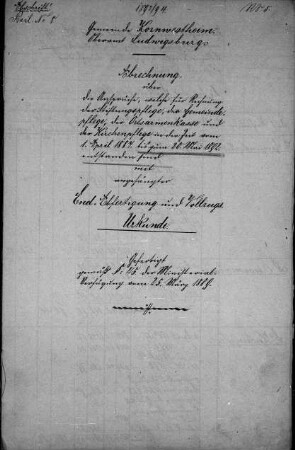 1893/94.
Beil. No 5
Gemeinde Kornwestheim.
Oberamt Ludwigsburg.
Abrechnung
über
die Ansprüche, welche für Rechnung
der Stiftungspflege, der Gemeinde-
pflege, der Ortsarmenkasse und
der Kirchenpflege in der Zeit vom
1. April 1887 bis zum 20. Mai 1892
entstanden sind
mit
angehängter
End-Abfertigung und Vollzugs-
Urkunde.
Gefertigt
gemäß § 46 der Ministerial-
Verfügung vom 25. März 1889.